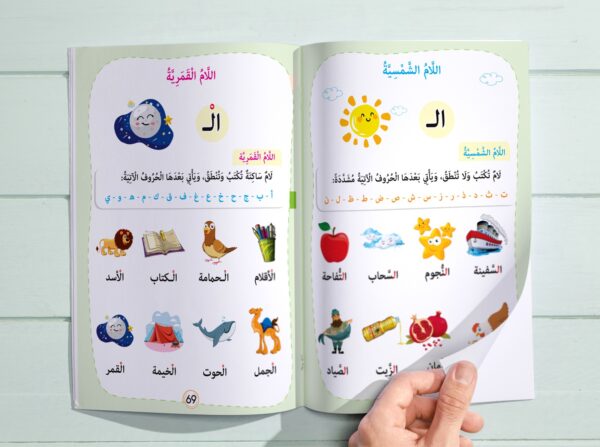 اللَّامُ الشَّمْسِيَّةُ
الـ
اللَّامُ الشَّمْسِيَّةُ
لَامٌ تُكْتَبُ وَلَا تُنْطَقُ، وَيَأْتِي بَعْدَهَا الْحُرُوفُ الْآتِيَةُ مُشَدَّدَةً:
ت - ث - د - ذ - ر - ز - س - ش - ص - ض - ط - ظ - ل - ن
السَّفينة النُّجوم السَّحاب التُّفاحة
الزَّيت الصَّياد
اللَّامُ الْقَمَرِيَّةُ
الْـ
اللَّامُ الْقَمَرِيَّةُ
لَامٌ سَاكِنَةٌ تُكْتَبُ وَتُنْطَقُ، وَيَأْتِي بَعْدَهَا الْحُرُوفُ الْآتِيَةُ:
أ - ب - ج - ح - خ - ع - غ - ف - ق - ك - م - هـ - و - ي
الْأقلام الْـحمامة الْـكتاب الْأسد
الْجمل الْحوت الْخيمة الْقمر
69